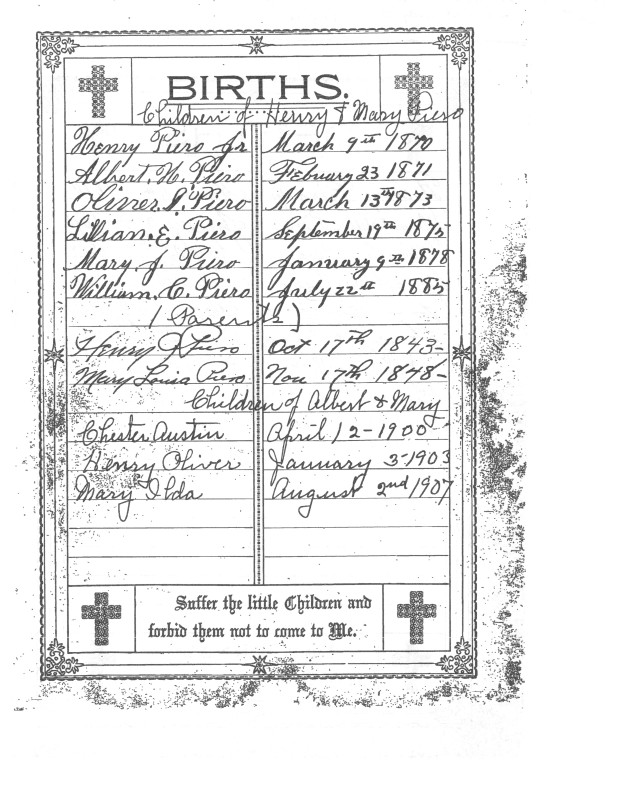 BIRTHS.
Children of Henry & Mary Piero
Henry Piero Jr March 9th 1870
Albert. H. Piero February 23 1871
Oliver. J. Piero March 13th 1873
Lillian. E. Piero September 19th 1875
Mary. J. Piero January 9th 1878
William. C. Piero July 22nd 1885
(Parents)
Henry J Piero Oct 17th 1843-
Mary Louisa Piero Nov 17th 1848-
Children of Albert & Mary
Chester Austin April 12-1900
Henry Oliver January 3-1903
Mary Ilda August 2nd 1907
Suffer the little Children and
forbid them not to come to Me.